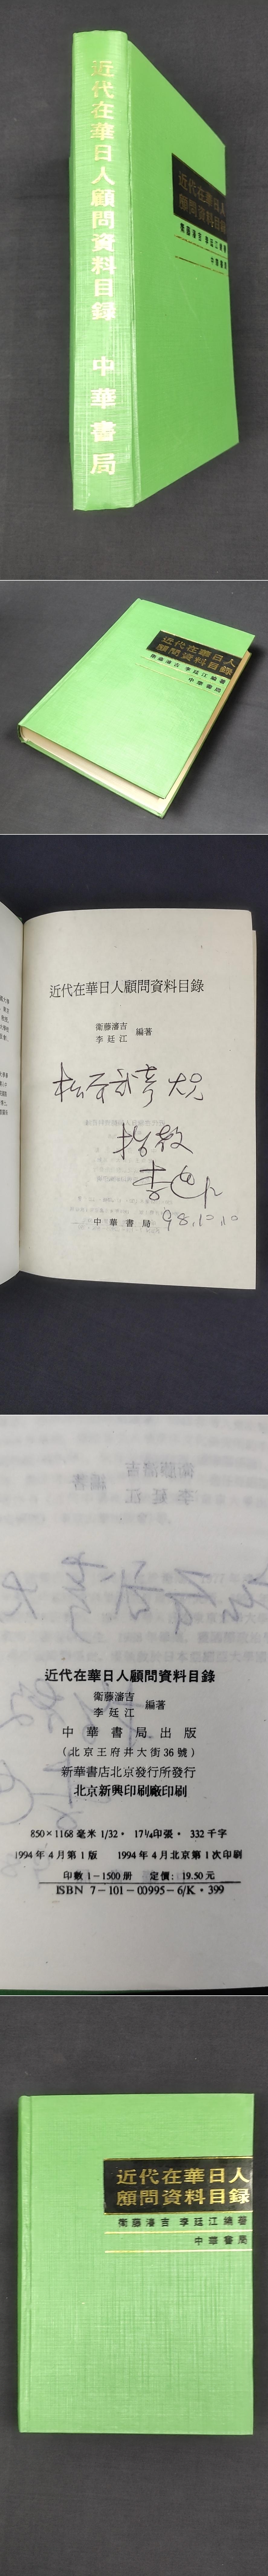 近代在華日人顧問資料目録
中華書局
近代在華日人
顧問資料目録
衛藤瀋吉 李廷江編著
中華書局
近代在華日人
顧問資料目録
衛藤瀋吉 李廷江編著
中華書局
近代在華日人顧問資料目錄
衛藤瀋吉
李廷江
編著
指教
李廷江
中華書局
98.10.10
近代在華日人顧問資料目錄
衛藤瀋吉
李廷江
編著
中華書局出版
（北京王府井大街36號）
新華書店北京發行所發行
北京新興印刷廠印刷
850×1168毫米 1/32· 17¼印張· 332千字
1994年4月第1版 1994年4月北京第1次印刷
印數1-1500册 定價：19.50元
ISBN 7-101-00995-6/K·399
近代在華日人
顧問資料目録
衛藤瀋吉 李廷江編著
中華書局